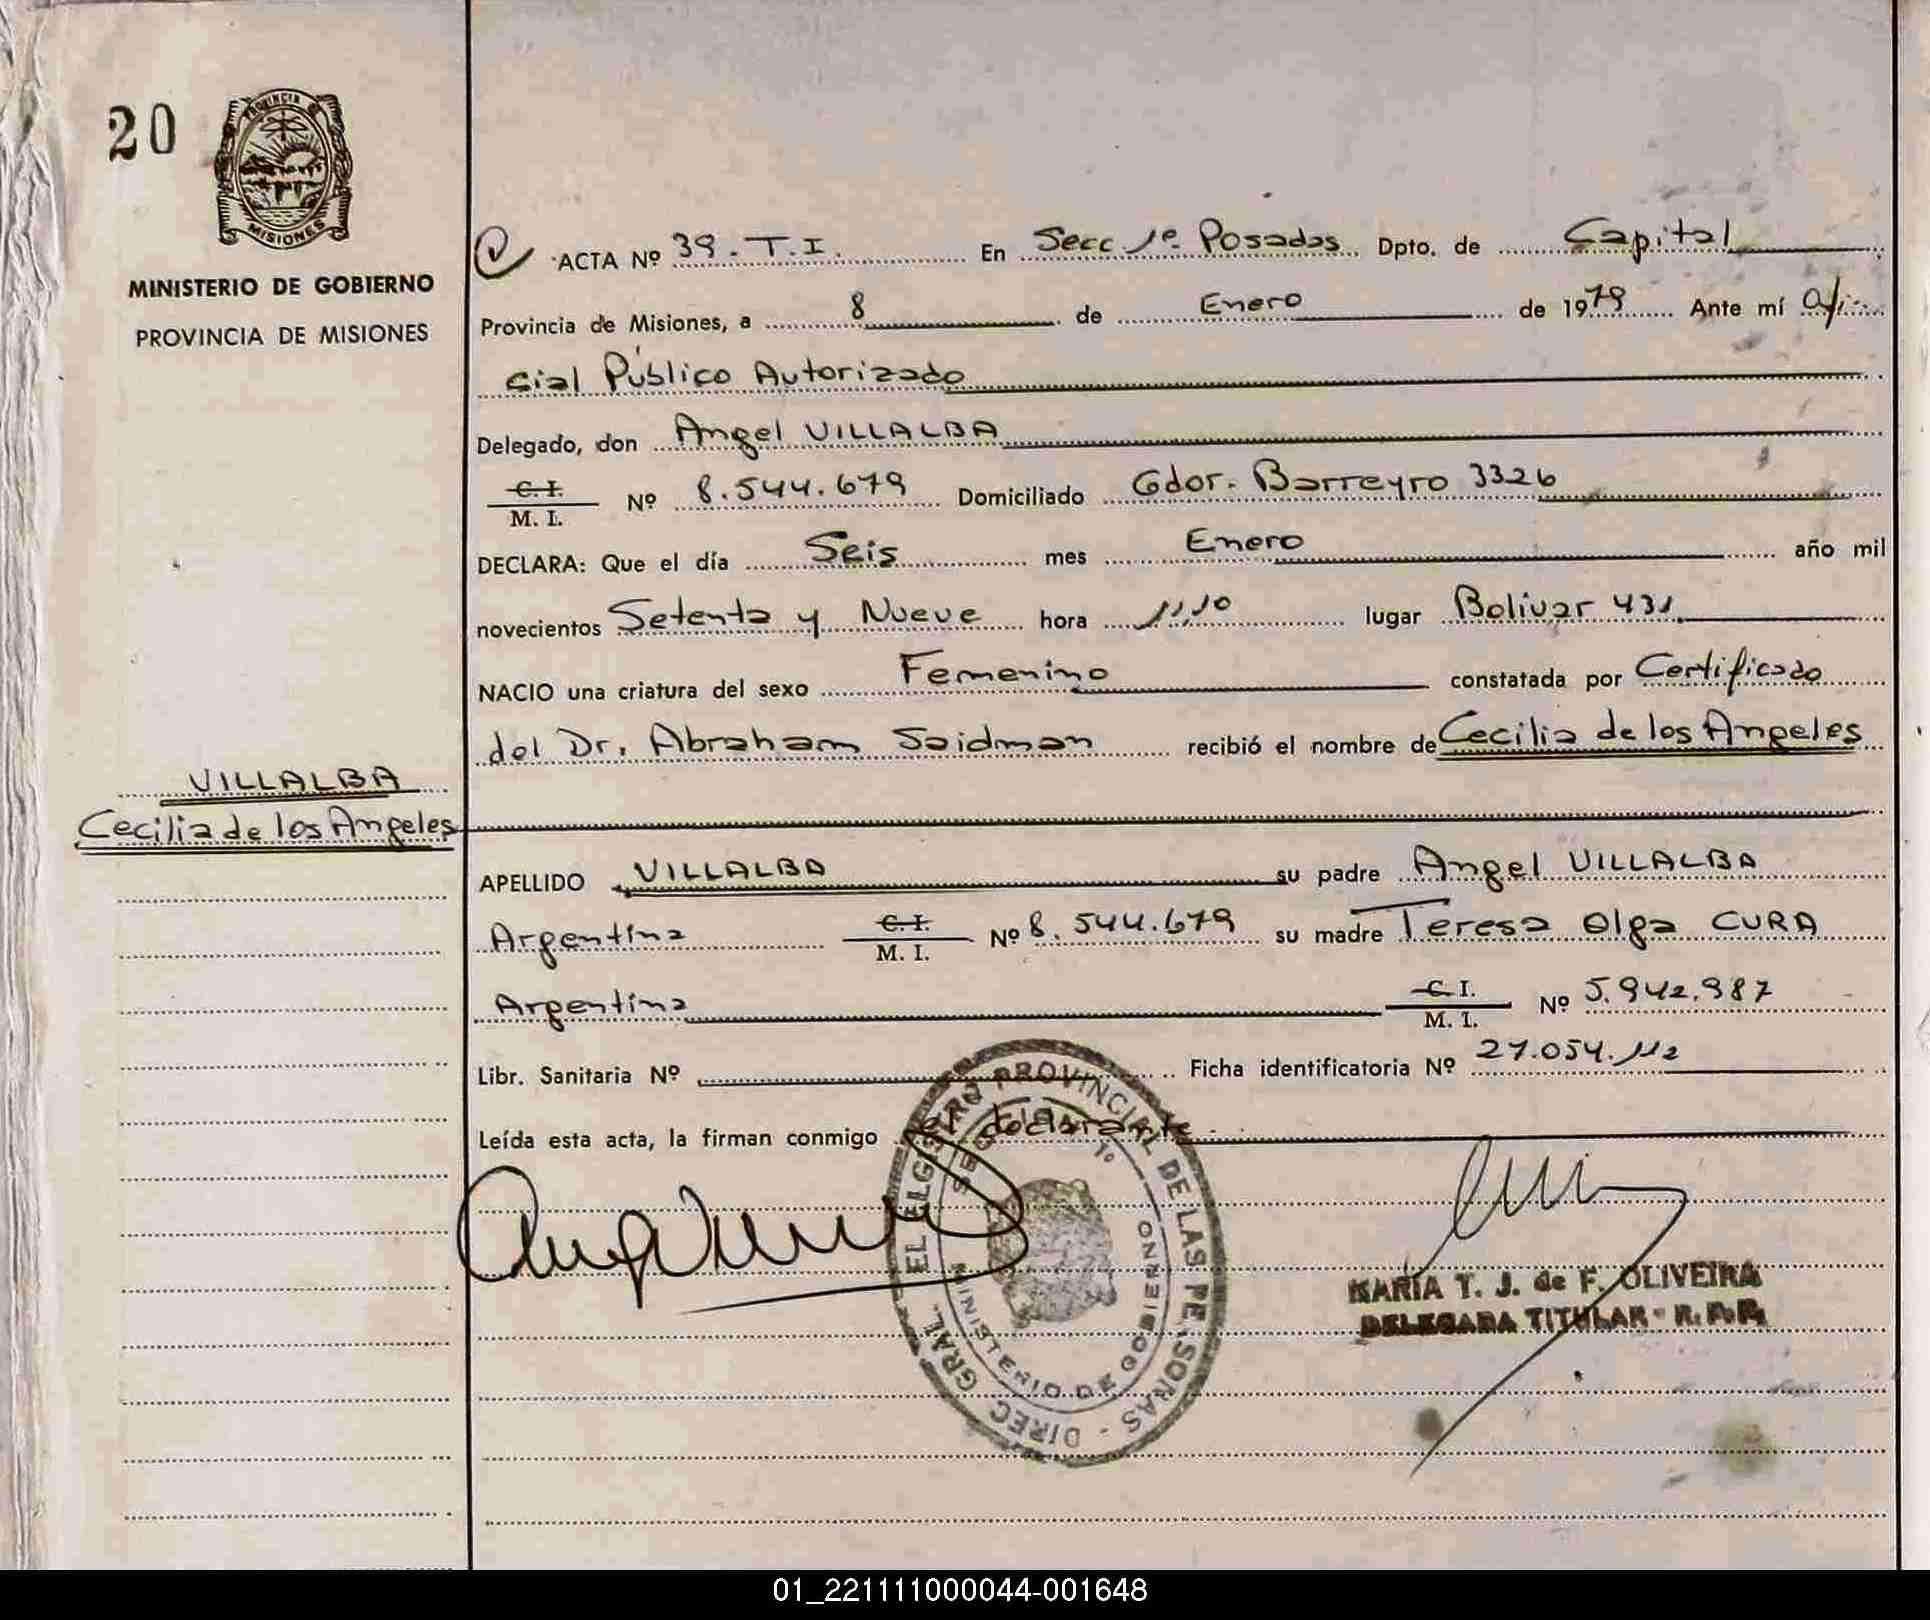 20
PROVINCIA D
MISIONES
MINISTERIO DE GOBIERNO
PROVINCIA DE MISIONES
VILLALBA
Cecilia de los Angeles
ACTA Nº 39 - T.I. En Secc 1º Posadas Dpto. de Capital
Provincia de Misiones, a 8 de Enero de 1979 Ante mí Ofi-
cial Público Autorizado
Delegado, don Angel VILLALBA
C.I.
M. I. Nº 8.544.679 Domiciliado Gdor. Barreyro 3326
DECLARA: Que el día Seis mes Enero año mil
novecientos Setenta y Nueve hora 11,10 lugar Bolívar 431
NACIO una criatura del sexo Femenino constatada por Certificado
del Dr. Abraham Saidman recibió el nombre de Cecilia de los Angeles
APELLIDO VILLALBA su padre Angel VILLALBA
Argentina C.I. M. I. Nº 8.544.679 su madre Teresa Olga CURA
Argentina C.I. M. I. Nº 5.942.987
Libr. Sanitaria Nº Ficha identificatoria Nº 27.054.112
Leída esta acta, la firman conmigo el declarante
DIREC. GRAL. DE LAS PERSONAS
PROVINCIAL
MINISTERIO DE GOBIERNO
SECC 1º
MARIA T. J. de F. OLIVEIRA
DELEGADA TITULAR - R.P.P.
01_221111000044-001648